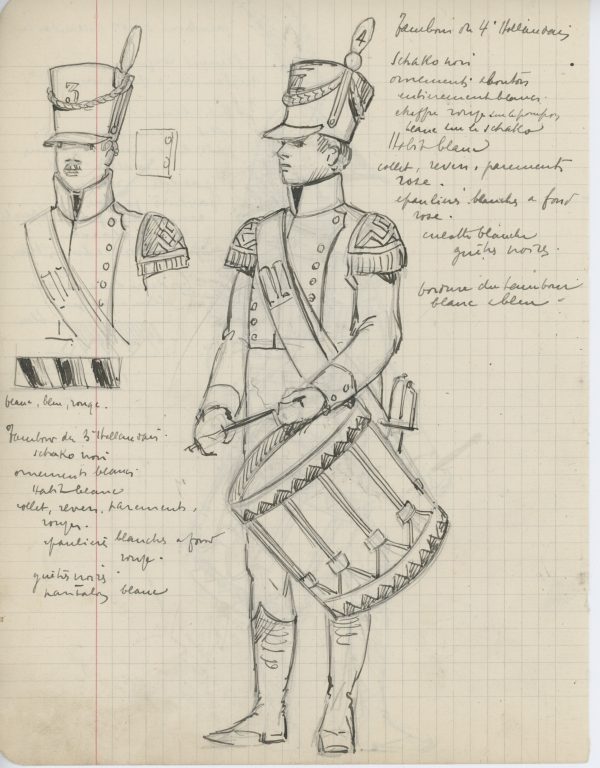 3
4
Tambour du 4e Hollandais
Schako noir
ornements & boutons
entièrement blancs.
chiffre rouge sur le pompon
blanc sur le schako
Habit blanc
collet, revers, parements
rose.
epaulières blanches a fond
rose.
culotte blanche
guêtres noires.
bordure du tambour
blanc & bleu
blanc, bleu, rouge.
Tambour du 3e Hollandais.
schako noir
ornements blancs
Habit blanc
collet, revers, parements,
rouges.
epaulières blanches a fond
rouge.
guêtres noires
pantalon blanc